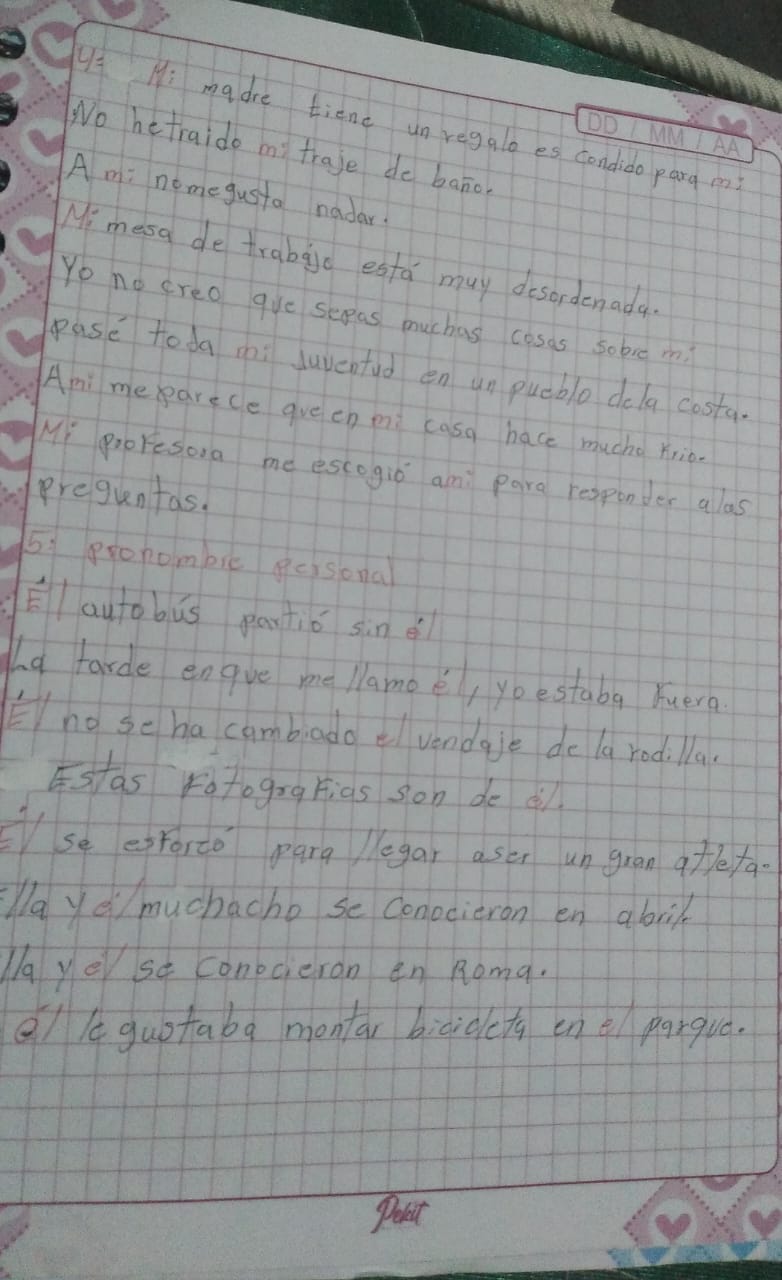 DD / MM / AA
4: Mi madre tiene un regalo es condido para mi
No hetraido mi traje de baño.
A mi nomegusta nadar.
Mi mesa de trabajo está muy desordenada.
Yo no creo que sepas muchas cosas sobre mi
pasé toda mi Juventud en un pueblo dela costa.
Ami me parece que en mi casa hace mucho Frio.
Mi profesora me escogió ami para responder alas
preguntas.
5: pronombre personal
Él autobús partió sin él
La tarde enque me llamo él, yo estaba Fuera.
Él no se ha cambiado el vendaje de la rodilla.
Estas FotograFias son de él.
Él se esForzó para llegar aser un gran atleta.
Ella y el muchacho se Conocieron en abril
lla y él se conocieron en Roma.
él le gustaba montar bicicleta en el parque.
Pekit